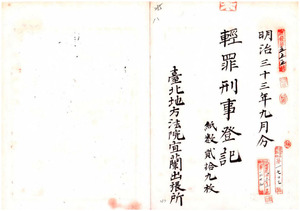 明治三十三年九月分
輕罪刑事登記
紙数貳拾九枚
臺北地方法院宜蘭出張所